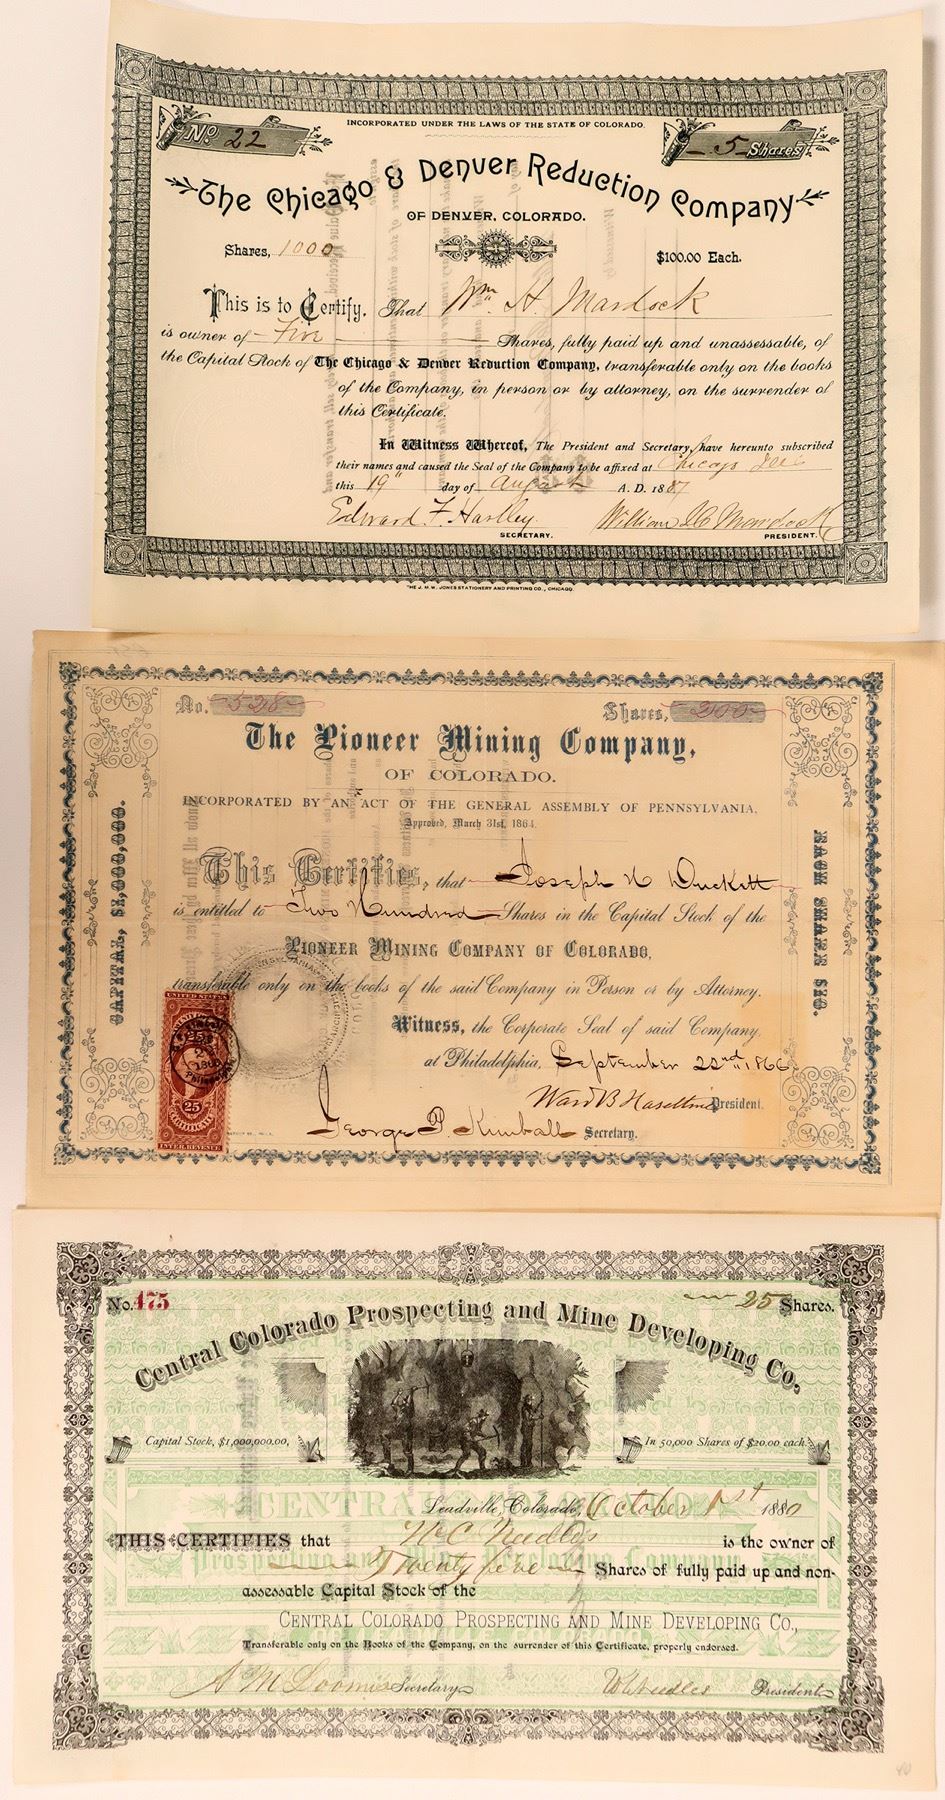 No. 22
INCORPORATED UNDER THE LAWS OF THE STATE OF COLORADO.
- 5 - Shares
The Chicago & Denver Reduction Company
OF DENVER, COLORADO.
Shares, 1000
$100.00 Each.
This is to Certify, That Wm. H. Mardock
is owner of - Five - Shares, fully paid up and unassessable, of
the Capital Stock of The Chicago & Denver Reduction Company, transferable only on the books
of the Company, in person or by attorney, on the surrender of
this Certificate.
In Witness Whereof, The President and Secretary, have hereunto subscribed
their names and caused the Seal of the Company to be affixed at Chicago Ills
this 19" day of August A. D. 1887
Edward F. Hartley. William H. Mardock
SECRETARY. PRESIDENT.
THE J. M. W. JONES STATIONERY AND PRINTING CO., CHICAGO.
No. 528
Shares, 200
The Pioneer Mining Company,
OF COLORADO.
INCORPORATED BY AN ACT OF THE GENERAL ASSEMBLY OF PENNSYLVANIA,
Approved, March 31st, 1864.
CAPITAL, $1,000,000.
EACH SHARE $10.
This Certifies, that Joseph N Duckett
is entitled to Two Hundred Shares in the Capital Stock of the
PIONEER MINING COMPANY OF COLORADO,
transferable only on the books of the said Company in Person or by Attorney.
Witness, the Corporate Seal of said Company,
at Philadelphia, September 22nd 1866
Ward B Haseltine President.
George P. Kimball Secretary.
UNITED STATES
25
CERTIFICATE
INTER. REVENUE
No. 475
25 Shares.
Central Colorado Prospecting and Mine Developing Co,
Capital Stock, $1,000,000.00,
In 50,000 Shares of $20.00 each
CENTRAL COLORADO
Prospecting and Mine Developing Company
Leadville, Colorado, October 1st 1880
THIS CERTIFIES that W C Needles is the owner of
Twenty five Shares of fully paid up and non-
assessable Capital Stock of the
CENTRAL COLORADO PROSPECTING AND MINE DEVELOPING CO.,
Transferable only on the Books of the Company, on the surrender of this Certificate, properly endorsed.
A M Loomis Secretary W C Needles President